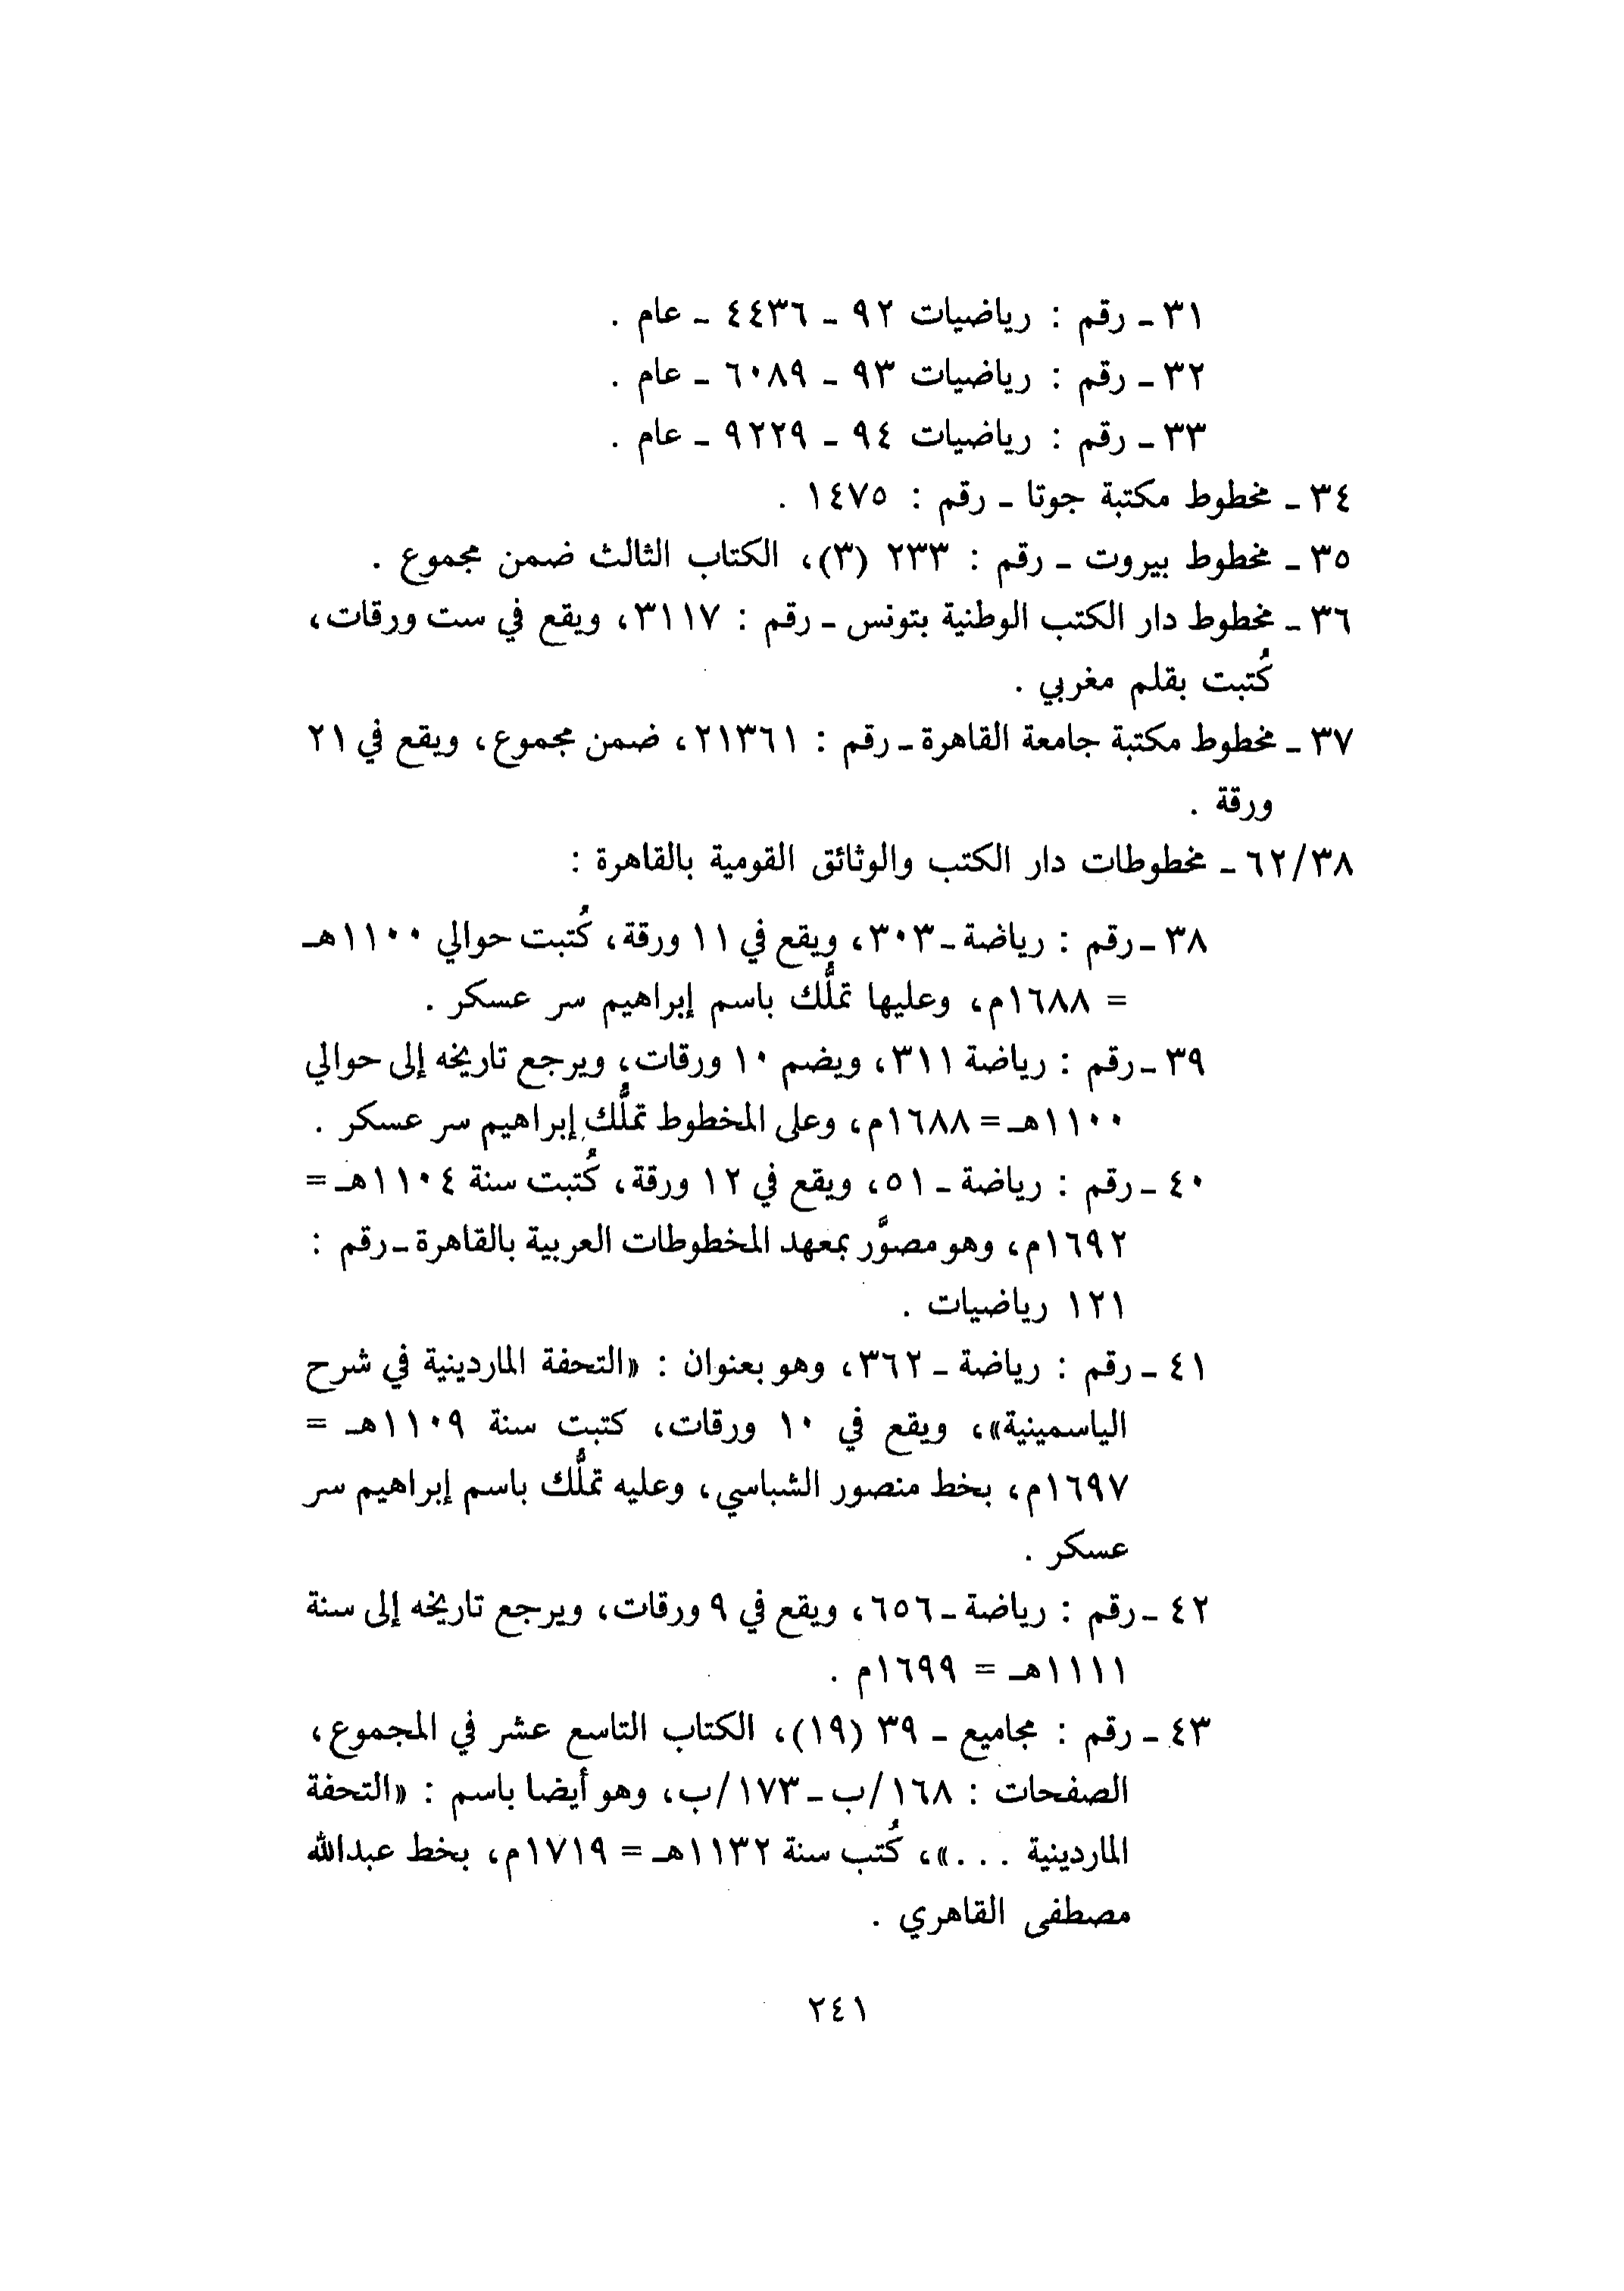 ٣١ - رقم : رياضيات ٩٢ - ٤٤٣٦ - عام .
٣٢ - رقم : رياضيات ٩٣ - ٦٠٨٩ - عام .
٣٣ - رقم : رياضيات ٩٤ - ٩٢٢٩ - عام .
٣٤ - مخطوط مكتبة جوتا - رقم : ١٤٧٥ .
٣٥ - مخطوط بيروت - رقم : ٢٣٣ (٣)، الكتاب الثالث ضمن مجموع .
٣٦ - مخطوط دار الكتب الوطنية بتونس - رقم : ٣١١٧، ويقع في ست ورقات،
كُتبت بقلم مغربي .
٣٧ - مخطوط مكتبة جامعة القاهرة - رقم : ٢١٣٦١، ضمن مجموع، ويقع في ٢١
ورقة .
٦٢/٣٨ - مخطوطات دار الكتب والوثائق القومية بالقاهرة :
٣٨ - رقم : رياضة - ٣٠٣، ويقع في ١١ ورقة، كُتبت حوالي ١١٠٠هـ
= ١٦٨٨م، وعليها تملُّك باسم إبراهيم سر عسكر .
٣٩ - رقم : رياضة ٣١١، ويضم ١٠ ورقات، ويرجع تاريخه إلى حوالي
١١٠٠هـ = ١٦٨٨م، وعلى المخطوط تملُّك إبراهيم سر عسكر .
٤٠ - رقم : رياضة - ٥١، ويقع في ١٢ ورقة، كُتبت سنة ١١٠٤هـ =
١٦٩٢م، وهو مصوَّر بمعهد المخطوطات العربية بالقاهرة - رقم :
١٢١ رياضيات .
٤١ - رقم : رياضة - ٣٦٢، وهو بعنوان : «التحفة الماردينية في شرح
الياسمينية»، ويقع في ١٠ ورقات، كتبت سنة ١١٠٩هـ =
١٦٩٧م، بخط منصور الشباسي، وعليه تملُّك باسم إبراهيم سر
عسكر .
٤٢ - رقم : رياضة - ٦٥٦، ويقع في ٩ ورقات، ويرجع تاريخه إلى سنة
١١١١هـ = ١٦٩٩م .
٤٣ - رقم : مجاميع - ٣٩ (١٩)، الكتاب التاسع عشر في المجموع،
الصفحات : ١٦٨/ب - ١٧٣/ب، وهو أيضا باسم : «التحفة
الماردينية . . .»، كُتب سنة ١١٣٢هـ = ١٧١٩م، بخط عبدالله
مصطفى القاهري .
٢٤١